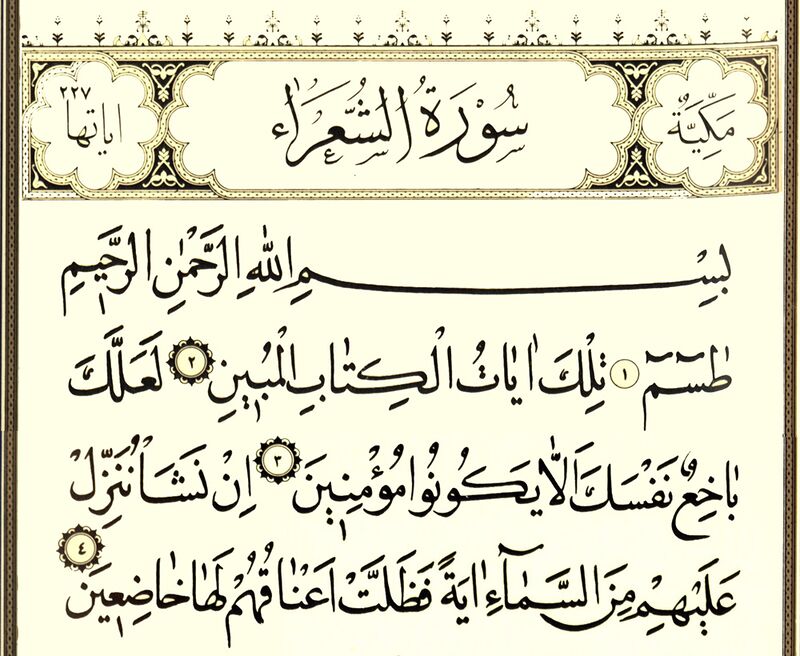 مَكِّيَّةٌ
سُوْرَةُ الشُّعَرَاءِ
اياتها ٢٢٧
بِسْمِ اللّٰهِ الرَّحْمٰنِ الرَّحٖيمِ
طٰسٓمٓ ١ تِلْكَ اٰيَاتُ الْكِتَابِ الْمُبٖينِ ٢ لَعَلَّكَ
بَاخِعٌ نَفْسَكَ اَلَّا يَكُونُوا مُؤْمِنٖينَ ٣ اِنْ نَشَأْ نُنَزِّلْ
عَلَيْهِمْ مِنَ السَّمَٓاءِ اٰيَةً فَظَلَّتْ اَعْنَاقُهُمْ لَهَا خَاضِعٖينَ ٤